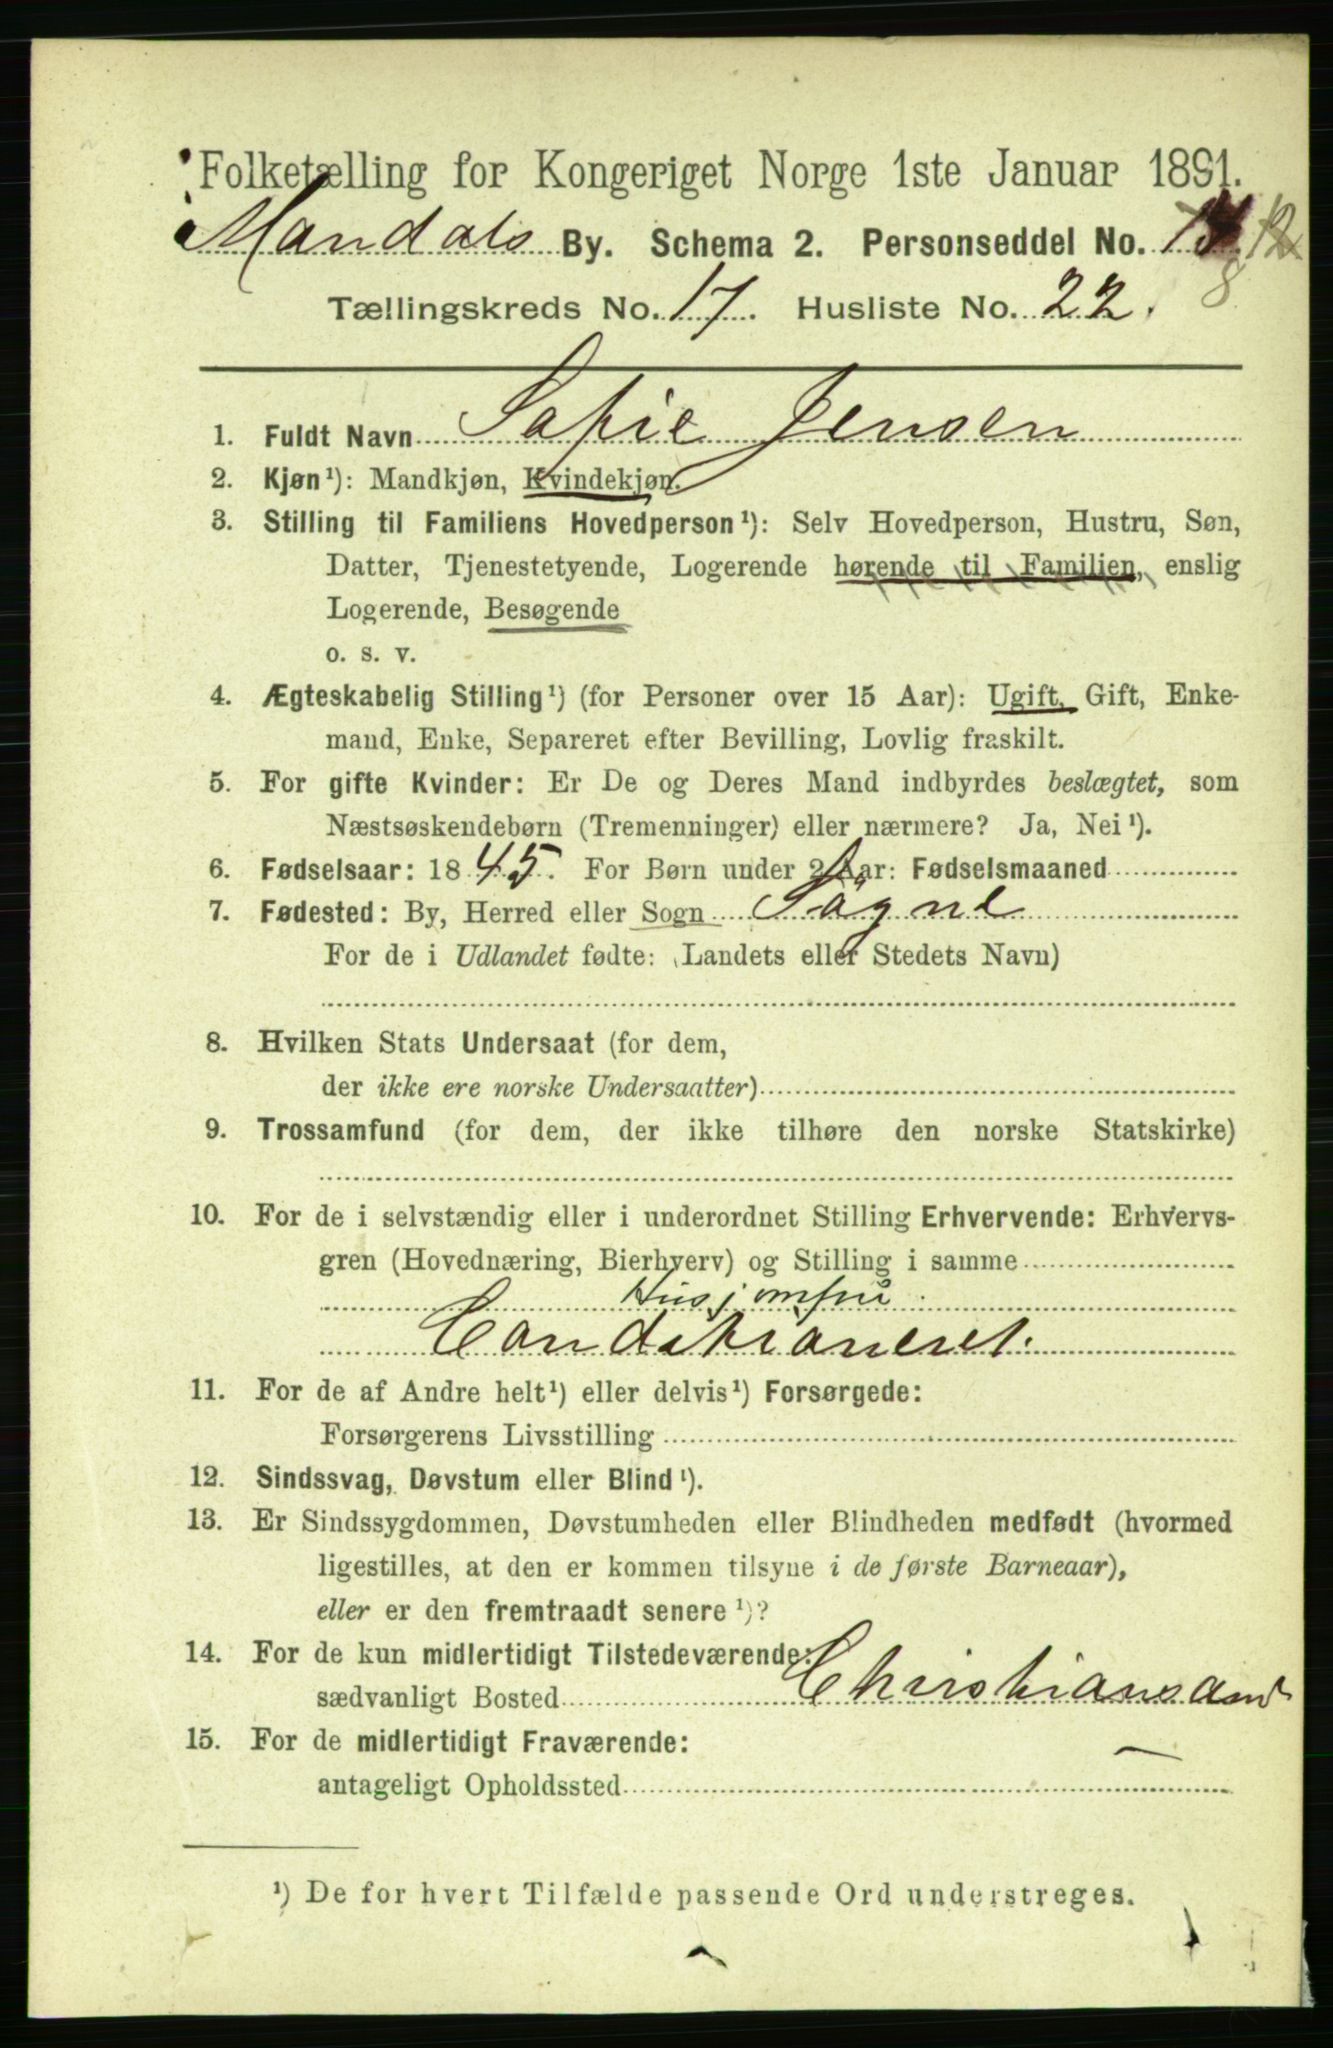 Folketælling for Kongeriget Norge 1ste Januar 1891.
Mandals By. Schema 2. Personseddel No. 12
8
Tællingskreds No. 17. Husliste No. 22.
1. Fuldt Navn Sofie Jensen
2. Kjøn¹): Mandkjøn, Kvindekjøn.
3. Stilling til Familiens Hovedperson¹): Selv Hovedperson, Hustru, Søn,
Datter, Tjenestetyende, Logerende hørende til Familien, enslig
Logerende, Besøgende
o. s. v.
4. Ægteskabelig Stilling¹) (for Personer over 15 Aar): Ugift, Gift, Enke-
mand, Enke, Separeret efter Bevilling, Lovlig fraskilt.
5. For gifte Kvinder: Er De og Deres Mand indbyrdes beslægtet, som
Næstsøskendebørn (Tremenninger) eller nærmere? Ja, Nei¹).
6. Fødselsaar: 1845. For Børn under 2 Aar: Fødselsmaaned
7. Fødested: By, Herred eller Sogn Sögne
For de i Udlandet fødte: (Landets eller Stedets Navn)
8. Hvilken Stats Undersaat (for dem,
der ikke ere norske Undersaatter)
9. Trossamfund (for dem, der ikke tilhøre den norske Statskirke)
10. For de i selvstændig eller i underordnet Stilling Erhvervende: Erhvervs-
gren (Hovednæring, Bierhverv) og Stilling i samme
Husjomfru
Condetioneret.
11. For de af Andre helt¹) eller delvis¹) Forsørgede:
Forsørgerens Livsstilling
12. Sindssvag, Døvstum eller Blind¹).
13. Er Sindssygdommen, Døvstumheden eller Blindheden medfødt (hvormed
ligestilles, at den er kommen tilsyne i de første Barneaar),
eller er den fremtraadt senere¹)?
14. For de kun midlertidigt Tilstedeværende:
sædvanligt Bosted Christiansand
15. For de midlertidigt Fraværende:
antageligt Opholdssted —
¹) De for hvert Tilfælde passende Ord understreges.